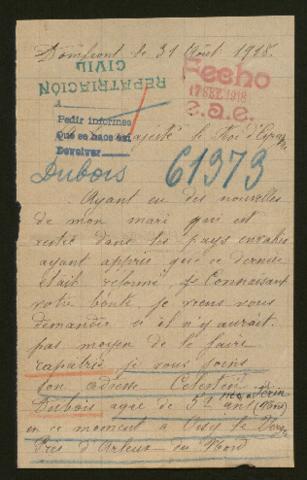 Domfront le 31 Août 1918.
REPATRIACIÓN
CIVIL
Fecho
17 SET. 1918
A
Pedir informes
Que se hace en
Devolver
Majesté le Roi d'Espagne
Dubois
61973
Ayant eu des nouvelles
de mon mari qui est
resté dans les pays envahis
ayant appris que ce dernier
était reformé, je Connaissant
votre bonté, je viens vous
demander si il n'y aurait
pas moyen de le faire
rapatrié je vous joins
son adresse Celestin
Dubois agé de 52 ans (Nord)
en ce moment a Oisy le Verger
Près d'Arleux du Nord